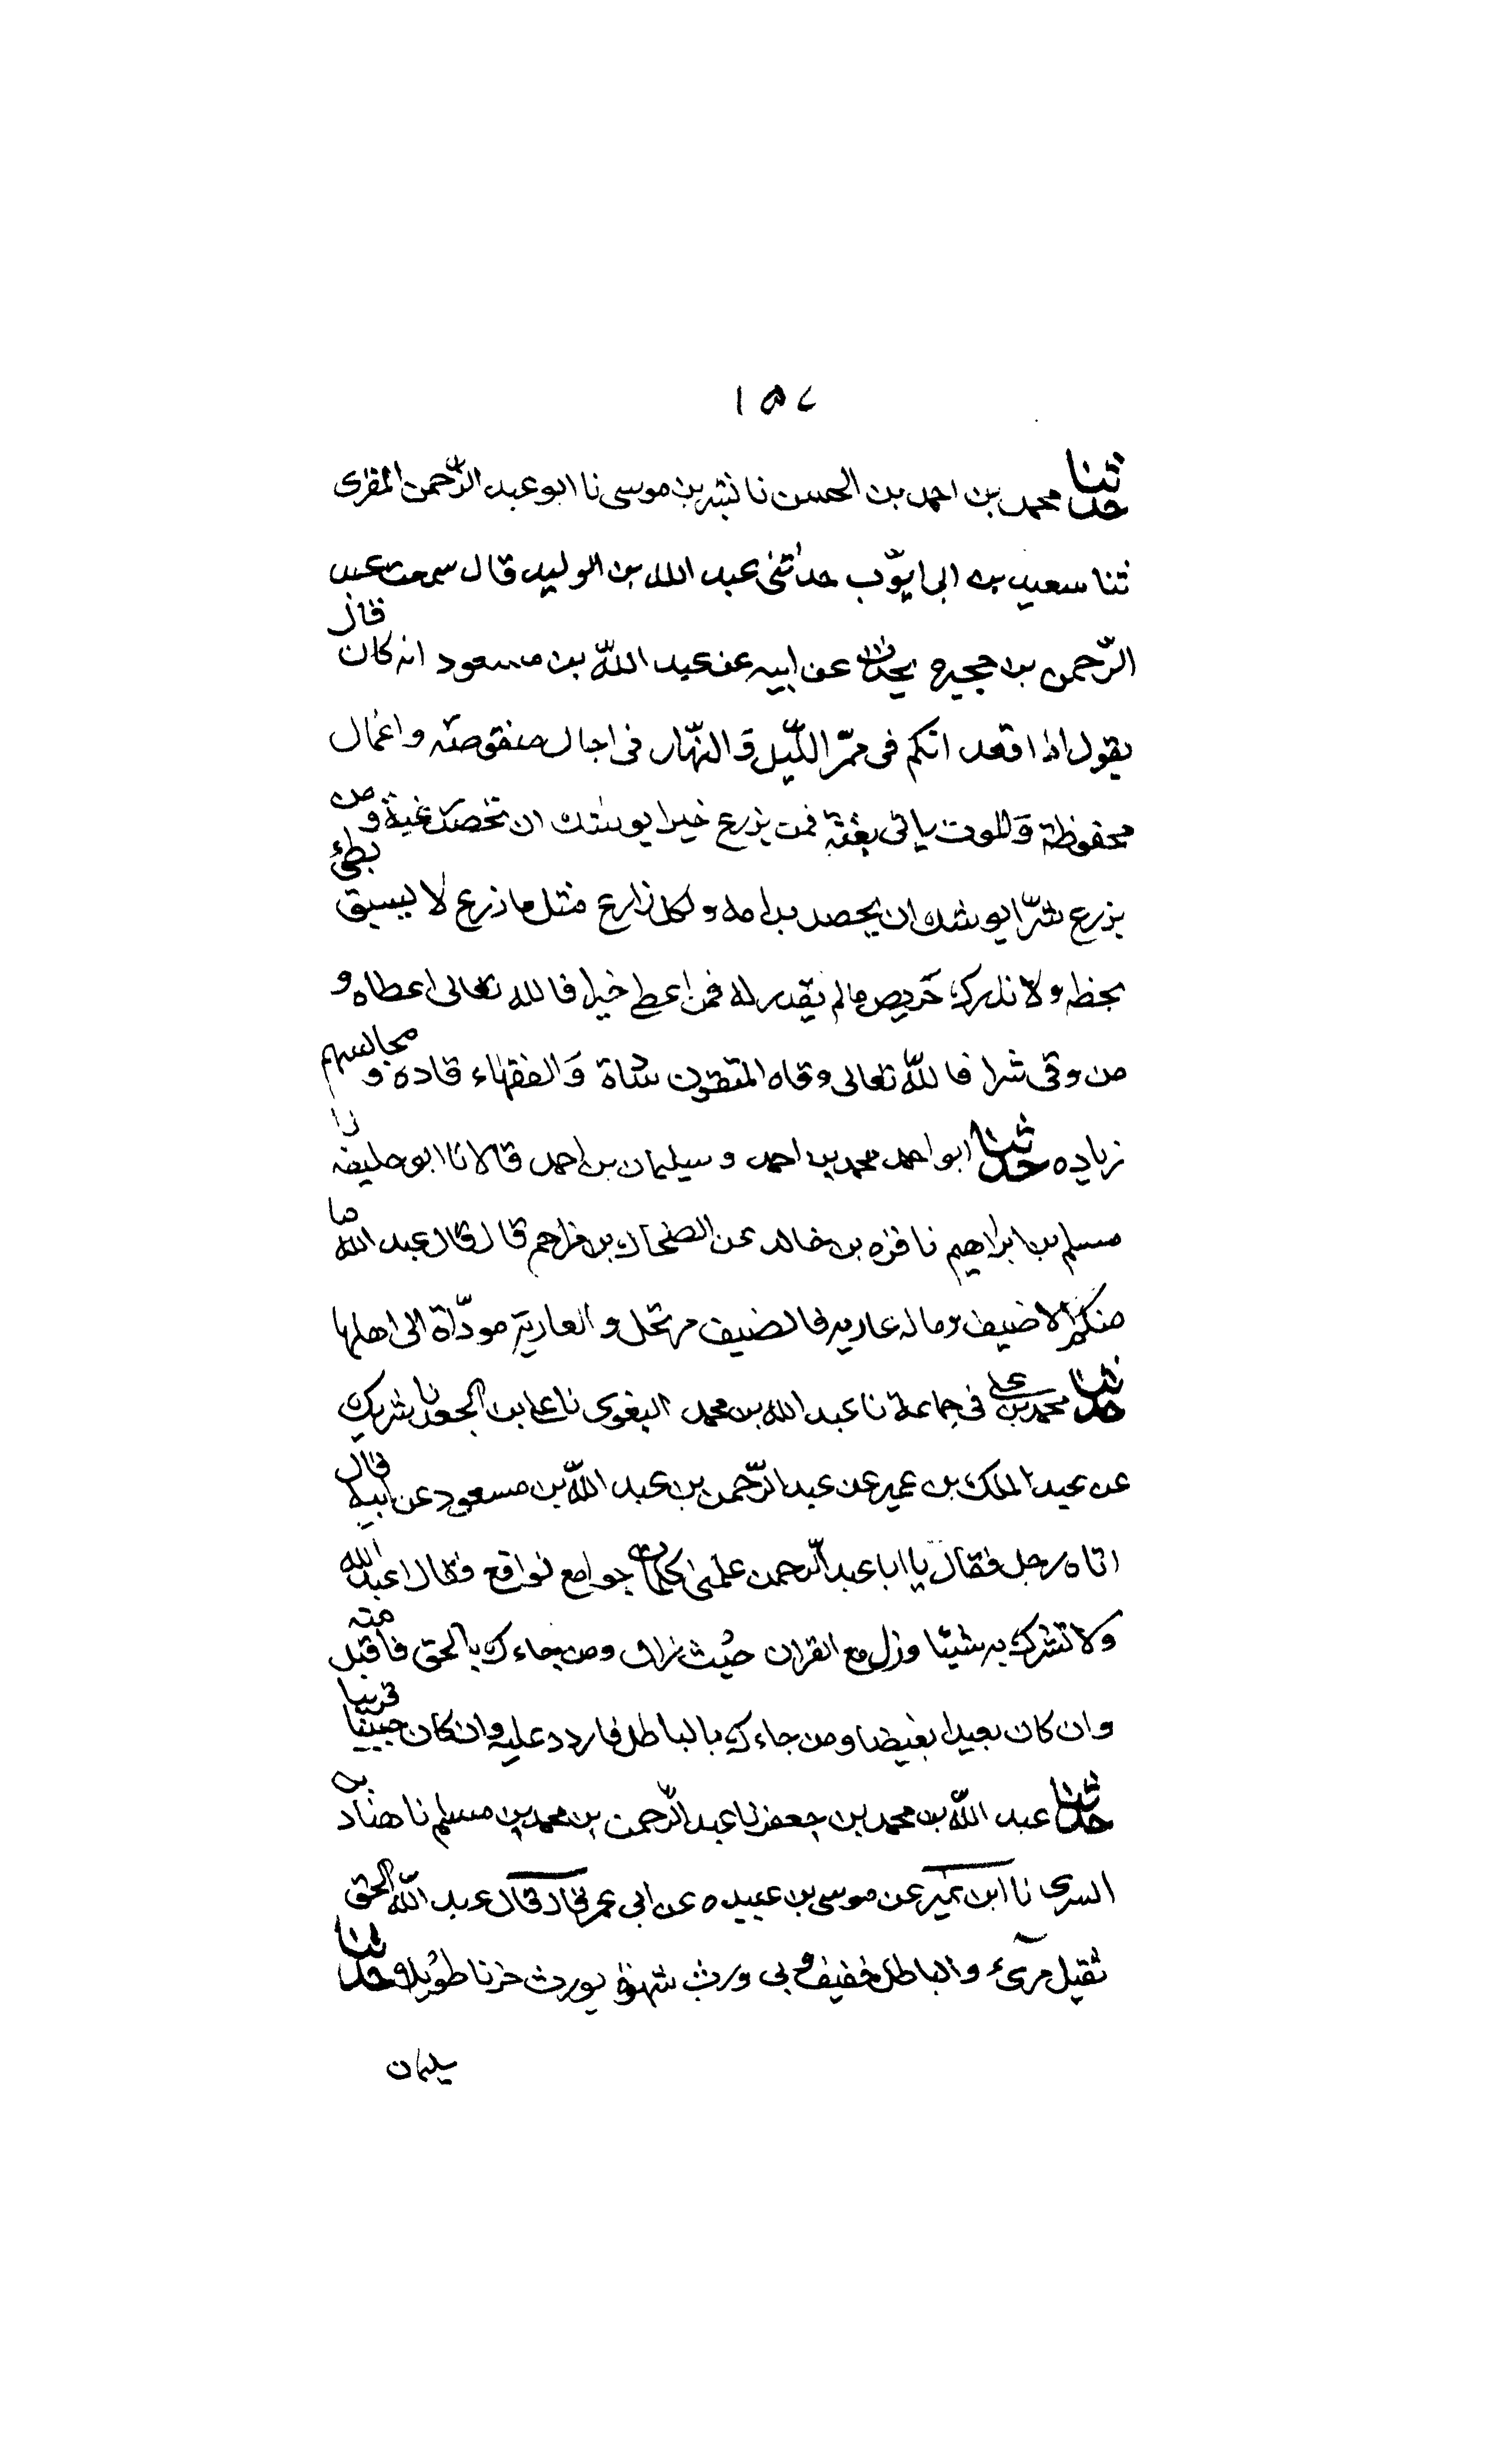 ١٥٧
حدثنا محمد بن احمد بن الحسن نا بشر بن موسى نا ابو عبد الرّحمن المقرى
ثنا سعيد بن ابى ايوّب حدثنى عبد الله بن الوليد قال سمعت عبد
الرّحمن بن حجيره يحدث عن ابيه عن عبد اللّه بن مسعود انه كان قال
يقول اذا قعد انكم فى ممرّ اللّيل وَ النهّار فى اجال منقوصته و اعمال
محفوظة وَ الموت ياتى بغتة فمن يزرع خيرا يوشك ان يحصد رغبة و من
يزرع شرّا يوشك ان يحصد ندامه و لكل زارع مثل ما زرع لا يسبق بطئ
بحظه و لا ندرك حريص ما لم يقدر له فمن اعطى خيرا فالله تعالى اعطاه و
من وقى شرا فاللّه تعالى وقاه المتقون سادة وَ الفقهاء قاده و مجالسهم
زياده حدثنا ابو احمد محمد بن احمد و سليمان بن احمد قالا نا ابو خليفه نا
مسلم بن ابراهيم نا قره بن خالد عن الضحاك بن مزاحم قال قال عبد اللّه ما
منكم الا ضيف و ماله عاريه فالضيف مرتحل و العارية مودّاة الى اهلها
حدثنا محمد بن على فى جماعة نا عبد الله بن محمد البغوى نا على بن الجعد نا شريك
عن عبد الملك بن عمير عن عبد الرّحمن بن عبد اللّه بن مسعود عن ابيه قال
اتاه رجل فقال يا ابا عبد الرّحمن علمنى كلمات جوامع نوافع فقال اعبد الله
ولا تشرك به شيئا و زل مع القران حيث زال و من جاءك بالحق فاقبل منه
و ان كان بعيدا بغيضا و من جاءك بالباطل فاردد عليه و ان كان حبيبا قريبا
حدثنا عبد اللّه بن محمد بن جعفر نا عبد الرّحمن بن محمد بن مسلم نا هناد بن
السرى نا ابن نمير عن موسى بن عبيده عن ابى عمر قال قال عبد اللّه الحق
ثقيل مرىء و الباطل خفيف وبى و رب شهوة يورث حزنا طويلا و حدثنا
سليمان